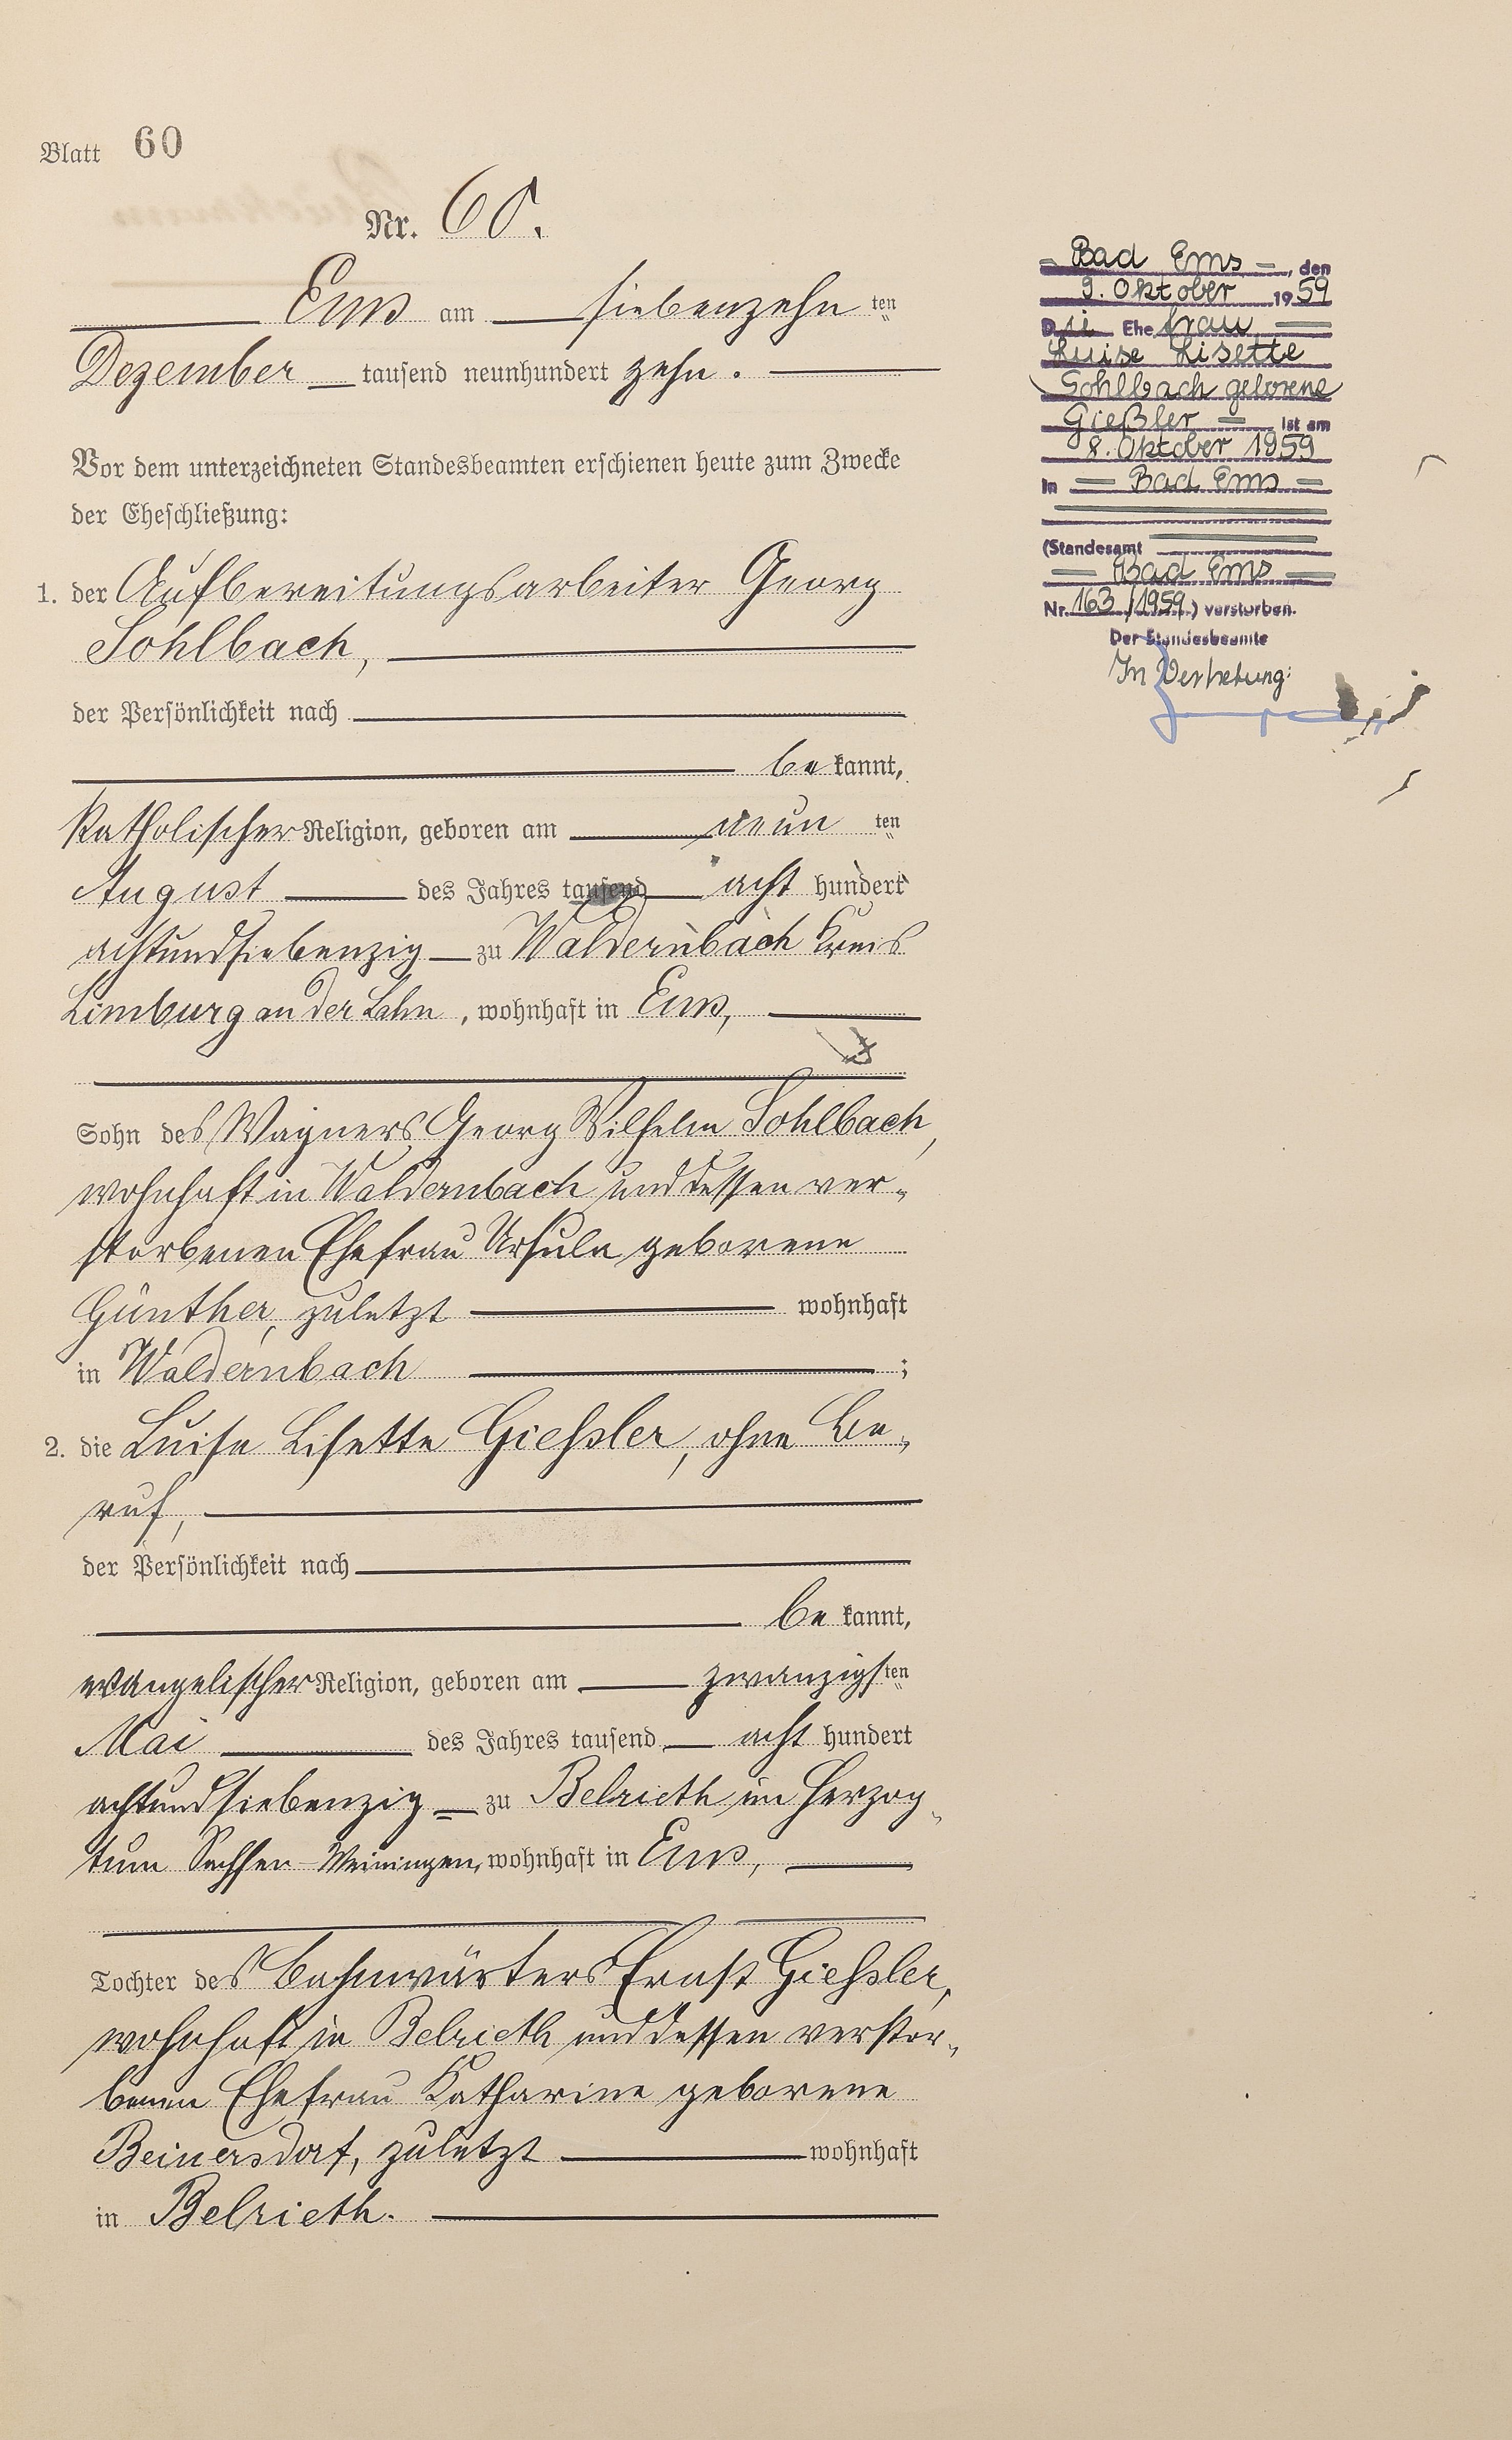 Blatt 60
Nr. 60.
Ems am siebenzehnten
Dezember tausend neunhundert zehn.
Vor dem unterzeichneten Standesbeamten erschienen heute zum Zwecke
der Eheschließung:
1. der Aufbereitungsarbeiter Georg
Sohlbach,
der Persönlichkeit nach
bekannt,
katholischer Religion, geboren am neunten
August des Jahres tausend acht hundert
achtundsiebenzig zu Waldernbach Kreis
Limburg an der Lahn, wohnhaft in Ems,
Sohn des Wagners Georg Wilhelm Sohlbach,
wohnhaft in Waldernbach und dessen ver-
storbenen Ehefrau Ursula geborene
Günther, zuletzt wohnhaft
in Waldernbach ;
2. die Luise Lisette Giessler, ohne Be-
ruf,
der Persönlichkeit nach
bekannt,
evangelischer Religion, geboren am zwanzigsten
Mai des Jahres tausend acht hundert
achtundsiebenzig zu Belrieth im Herzog-
tum Sachsen-Meiningen, wohnhaft in Ems,
Tochter des Bahnwärters Ernst Giessler,
wohnhaft in Belrieth und dessen verstor-
benen Ehefrau Katharine geborene
Beinersdorf, zuletzt wohnhaft
in Belrieth.
Bad Ems, den
9. Oktober 1959
Die Ehefrau
Luise Lisette
Sohlbach geborene
Gießler ist am
8. Oktober 1959
in Bad Ems
(Standesamt
Bad Ems
Nr. 163/1959) verstorben.
Der Standesbeamte
In Vertretung: